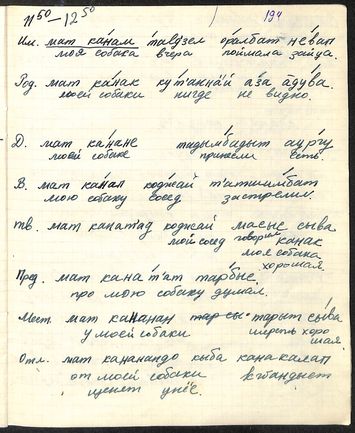 11⁵⁰ – 12⁵⁰
194
Им. мат кана́м та́вдзел оралбат не́ван
моя собака вчера поймала зайца.
Род. мат ка́нак ку́т'аннӓй а́за аду́ва.
моей собаки нигде не видно.
Д. мат ка́нане тадымба́дыт аургу
моей собаке принесли есть.
В. мат канап коджай т'атшимбат
мою собаку сосед застрелил.
тв. мат канат'ад коджай масыс сыва
мой сосед говорил канак
моя собака
хорошая.
Пред. мат кана́т'ат та́рбыс.
про мою собаку думал.
Мест. мат кананан тар сы тарыт сы́ва
у моей собаки шерсть хоро
шая.
Отл. мат канана́ндо кыба канакалап
от моей собаки
щенят унёс.